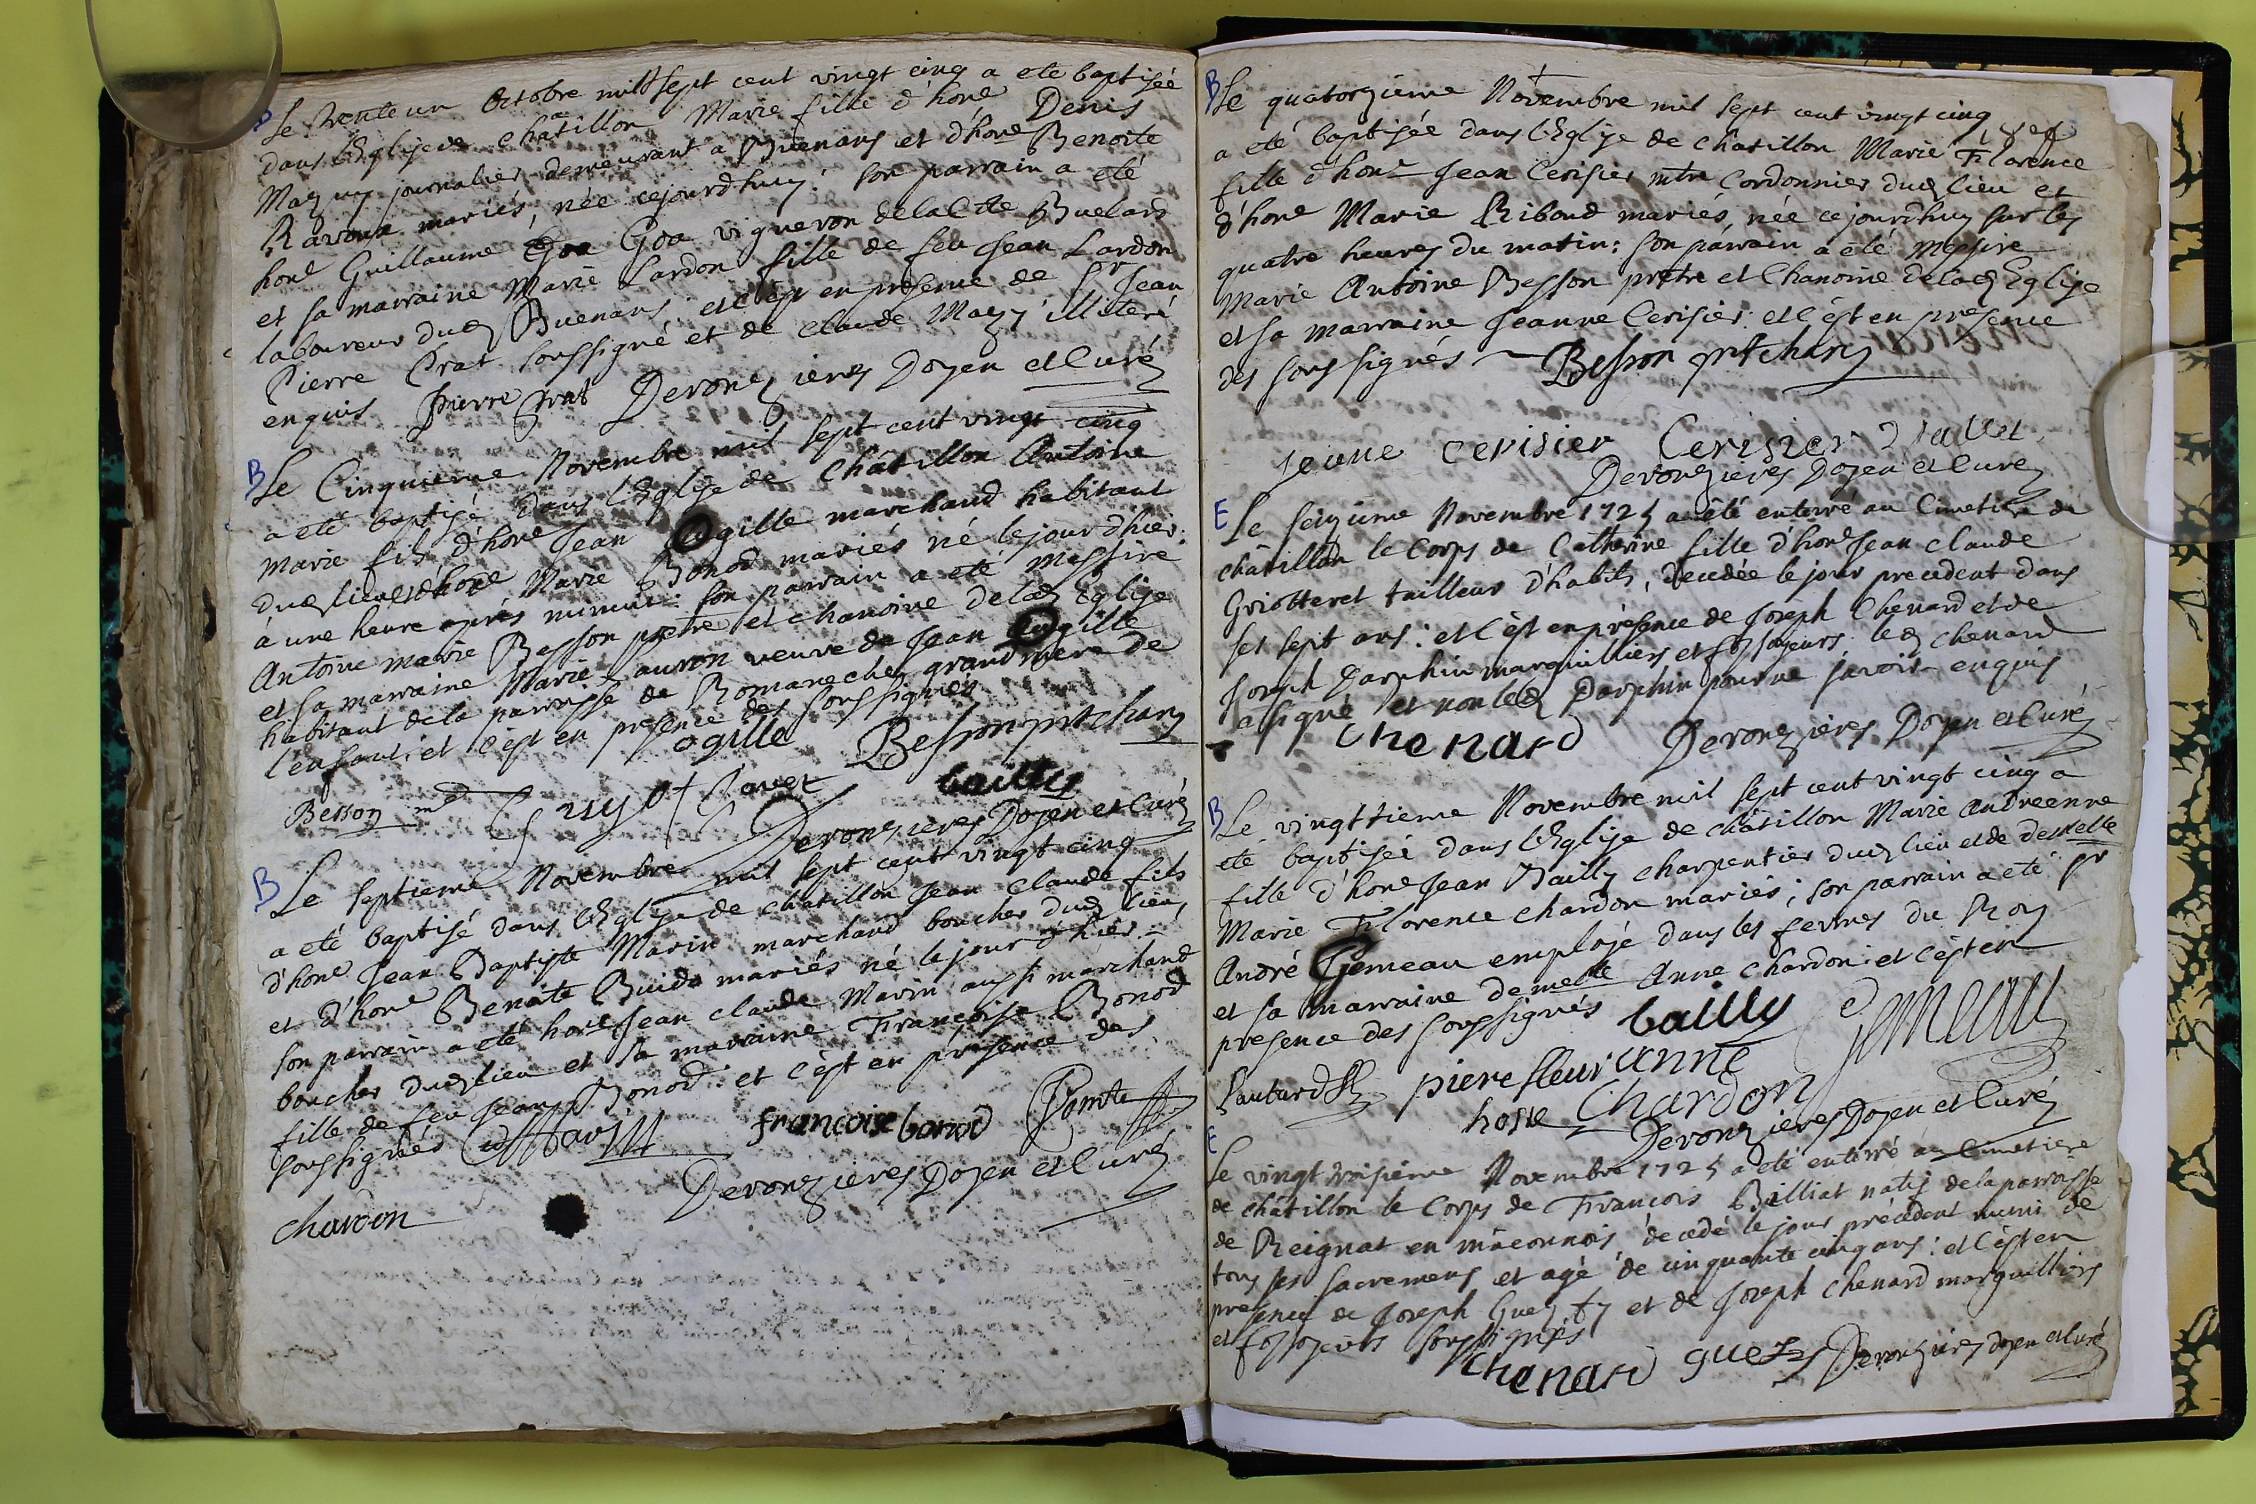 B Le trente un Octobre mil sept cent vingt cinq a eté baptisée
dans l'Eglise de châtillon Marie fille d'hone Denis
Maguy journalier demeurant a Buenans et d'hone Benoite
Ravoux mariés, née cejourdhuy: son parrain a eté
hone Guillaume Goa vigneron de la Buelard
et sa marraine Marie Lardon fille de feu Jean Lardon
laboureur dud Buenans. et c'est en presence de Sr Jean
Pierre Prat soussigné et de Claude Maguy illiteré
enquis Pierre prat Deronzieres Doyen et Curé
B Le Cinquieme Novembre mil sept cent vingt cinq
a eté baptisé dans l'Eglise de Châtillon Antoine
Marie fils d'hone Jean Ogille marchand habitant
dud lieu et d'hone Marie Bonod mariés né lejour d'hier
à une heure aprés minuit: son parrain a eté Messire
Antoine marie Besson prêtre et chanoine de lad Eglise
et sa marraine Marie Lauron veuve de Jean Ogille
habitant de la parroisse de Romaneche grand mere de
l'enfant: et c'est en presence des soussignés
ogille Besson prtchan
Besson guyot bailly
Deronzieres Doyen et Curé
B Le septieme Novembre mil sept cent vingt cinq
a eté baptisé dans l'Eglise de chatillon Jean Claude fils
d'hone Jean Baptiste Marin marchand boucher dud lieu
et d'hone Benoite Buido mariés né le jour d'hier
son parrain a eté hone Jean claude Marin aussi marchand
boucher dud lieu et sa marraine Françoise Bonod
fille de feu Jean Bonod: et c'est en presence des
soussignés Marin francoise bonod
Deronzieres Doyen et Curé
chardon
B Le quatorzieme Novembre mil sept cent vingt cinq
a eté baptisée dans l'Eglise de châtillon Marie Florence
fille d'hone Jean Cerisier mtre Cordonnier dud lieu et
d'hone Marie Riboud mariés, née cejourdhuy sur les
quatre heures du matin: son parrain a eté Messire
Marie Antoine Besson prêtre et Chanoine de lad Eglise
et sa marraine Jeanne Cerisier: et c'est en presence
des soussignés Besson prtchan
cerisier Cerisier
Deronzieres Doyen et Curé
E Le seizieme Novembre 1725 a été enterré au Cimetiere de
châtillon le Corps de Catherine fille d'hone Jean claude
Griotteret tailleur d'habits, decedée le jour precedent dans
ses sept ans: et c'est en présence de Joseph Chenard et de
Joseph Darphin marguilliers et fossoyeurs. led chenard
a signé et non led Darphin pour ne sçavoir enquis
Chenard Deronzieres Doyen et Curé
B Le vingttieme Novembre mil sept cent vingt cinq a
eté baptisée dans l'Eglise de châtillon Marie Andreanne
fille d'hone Jean Bailly charpentier dud lieu et de demelle
Marie Florence chardon mariés; son parrain a eté sr
André Gemeau employé dans les fermes du Roy
et sa marraine demelle Anne chardon: et c'est en
presence des soussignés bailly Gemeau
piere fleuri anne
Chardon
Deronzieres Doyen et Curé
E
Le vingt troisieme Novembre 1725 a eté enterré au Cimetiere
de châtillon le Corps de François Billiat natif de la parroisse
de Reignat en mâconnois décedé le jour précedent muni de
tous ses sacremens et agé de cinquante cinq ans: et c'est en
presence de Joseph Guezty et de Joseph Chenard marguilliers
et fossoyeurs soussignés
Chenard guezty Deronzieres doyen et Curé